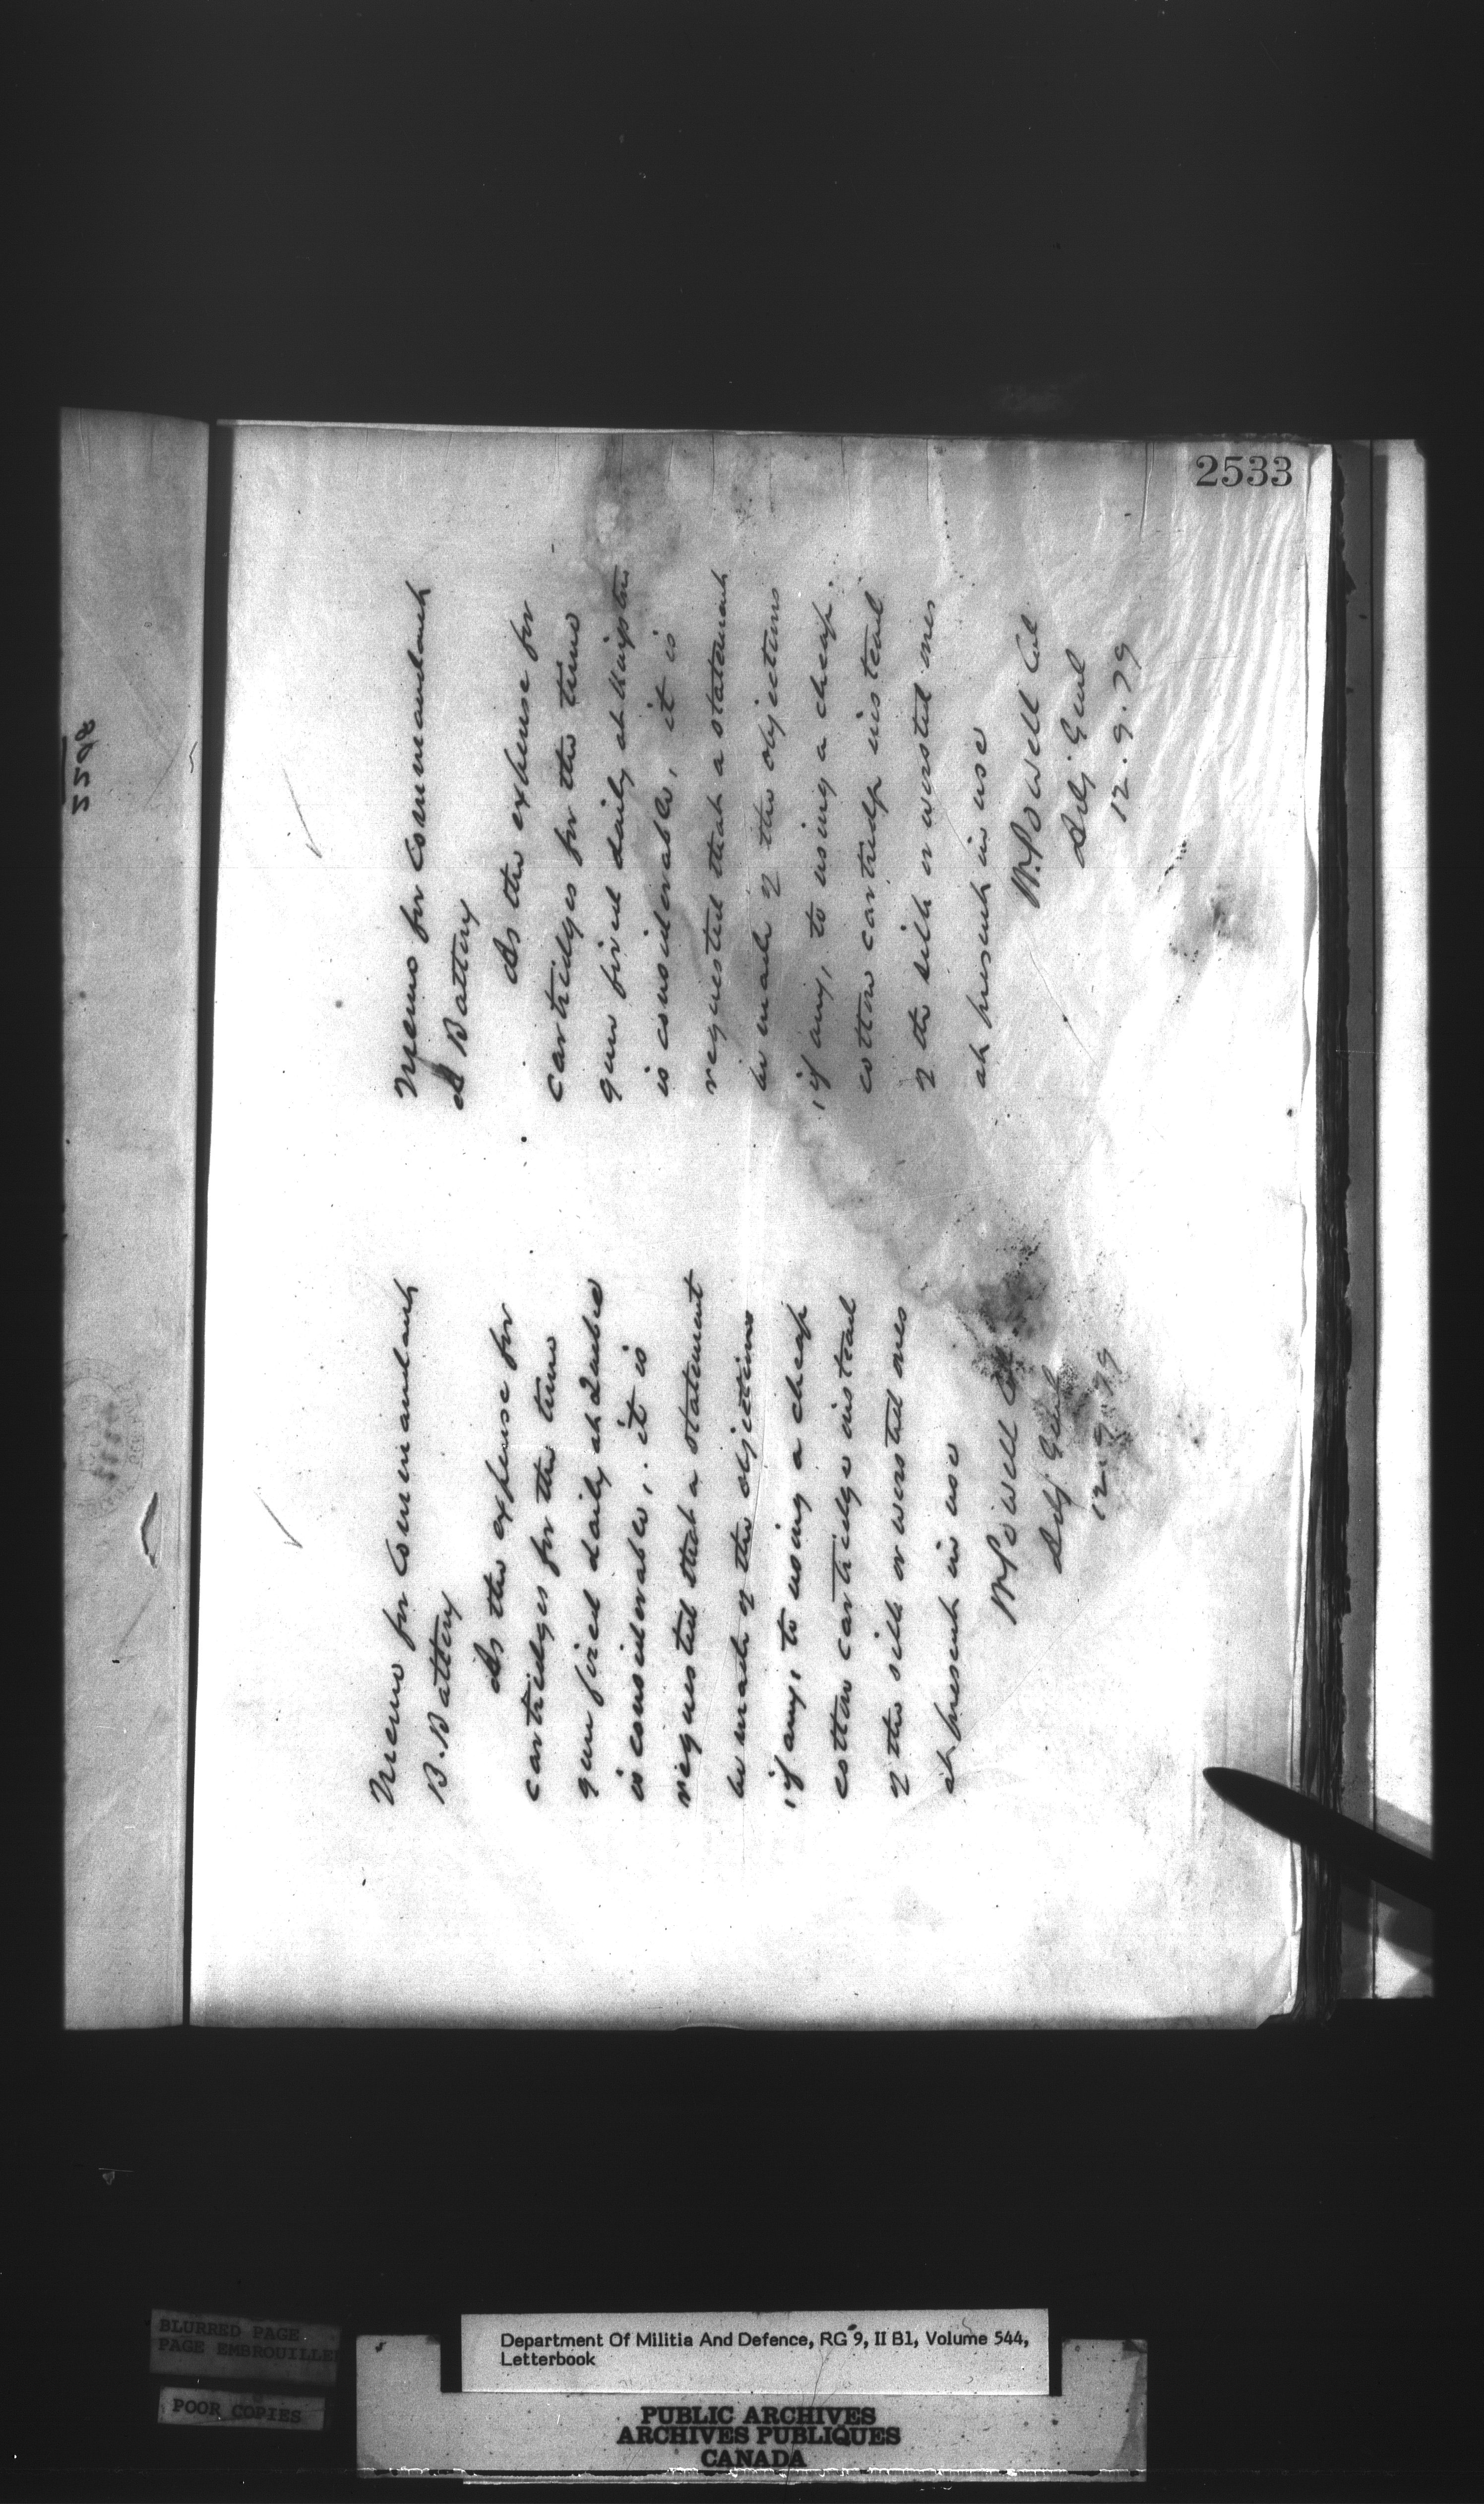 2533
2298
Memo for Commandant
B. Battery
As the expense for
cartridges for the time
gun fired daily at Quebec
is considerable, it is
requested that a statement
be made of the objections
if any, to using a cheap
cotton cartridge instead
of the silk or worsted ones
at present in use
W Powell Col
Adj Genl
12.9.79
Memo for Commandant
A Battery
As the expense for
cartridges for the time
gun fired daily at Kingston
is considerable, it is
requested that a statement
be made of the objections
if any, to using a cheap
cotton cartridge instead
of the silk or worsted ones
at present in use
W. Powell Col
Adj Genl
12.9.79
BLURRED PAGE
PAGE EMBROUILLE
POOR COPIES
Department Of Militia And Defence, RG 9, II B1, Volume 544,
Letterbook
PUBLIC ARCHIVES
ARCHIVES PUBLIQUES
CANADA